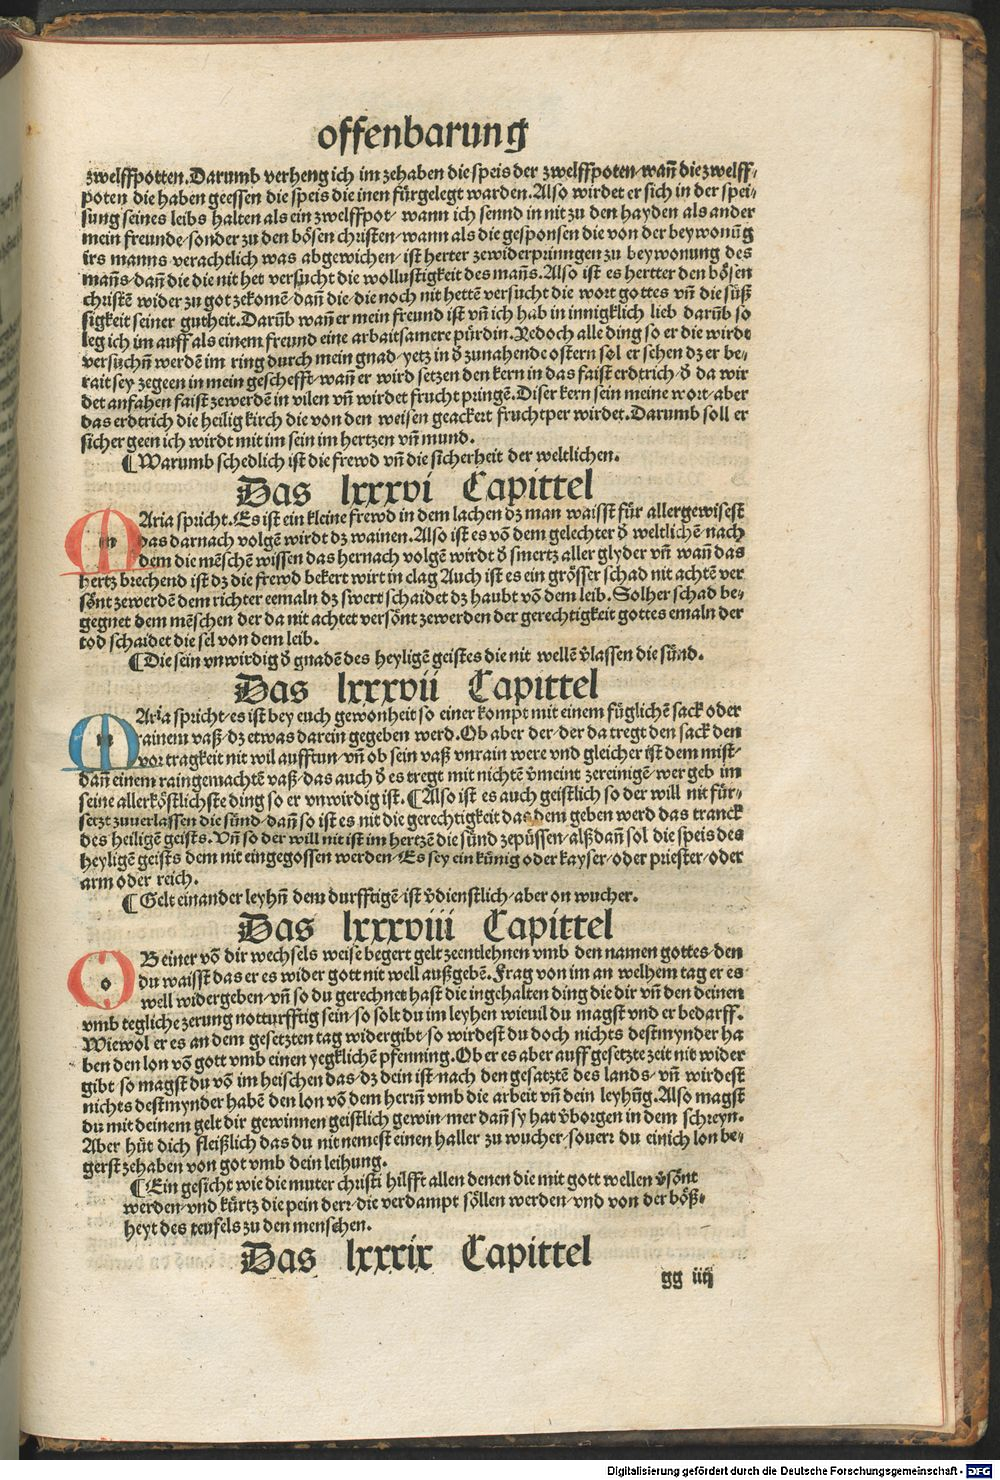 offenbarung
zwelffpotten. Darumb verheng ich im zehaben die speis der zwelffpoten/ wan̄ die zwelff/
poten die haben geessen die speis die inen fürgelegt warden. Also wirdet er sich in der spei/
sung seines leibs halten als ein zwelffpot/ wann ich sennd in nit zu den hayden als ander
mein freunde/ sonder zu den bösen christen/ wann als die gesponsen die von der beywonūg
irs manns verachtlich was abgewichen/ ist herter zewiderprinngen zu beywonung des
man̄s/ dan̄ die die nit het versucht die wollustigkeit des man̄s. Also ist es hertter den bösen
christē wider zu got zekomē/ dan̄ die/ die noch nit hettē versucht die wort gottes vn̄ die süß
sigkeit seiner gutheit. Darūb wan̄ er mein freund ist vn̄ ich hab in innigklich lieb darūb so
leg ich im auff als einem freund eine arbaitsamere pürdin. Yedoch alle ding so er die wirdt
versuchn̄ werdē im ring durch mein gnad/ yetz in d̄ zunahende ostern sol er sehen dz er be/
rait sey zegeen in mein geschefft/ wan̄ er wird setzen den kern in das faist erdtrich/ d̄ da wir
det anfahen faist zewerdē in vilen vn̄ wirdet frucht pringē. Diser kern sein meine wort/ aber
das erdtrich die heilig kirch die von den weisen geackert fruchtper wirdet. Darumb soll er
sicher geen ich wirdt mit im sein im hertzen vn̄ mund.
¶ Warumb schedlich ist die frewd vn̄ die sicherheit der weltlichen.
Das lxxxvi Capittel
MAria spricht. Es ist ein kleine frewd in dem lachen dz man waisst für allergewisest
das darnach volgē wirdt dz wainen. Also ist es vō dem gelechter d̄ weltlichē/ nach
dem die mēschē wissen das hernach volgē wirdt d̄ smertz aller glyder vn̄ wan̄ das
hertz brechend ist dz die frewd bekert wirt in clag Auch ist es ein grösser schad nit achtē ver
sönt zewerdē dem richter eemaln dz swert schaidet dz haubt vō dem leib. Solher schad be/
gegnet dem mēschen der da nit achtet versönt zewerden der gerechtigkeit gottes emaln der
tod schaidet die sel von dem leib.
¶ Die sein vnwirdig d̄ gnadē des heyligē geistes die nit wellē v̄lassen die sünd.
Das lxxxvii Capittel
MAria spricht/ es ist bey euch gewonheit so einer kompt mit einem füglichē sack oder
rainem vaß/ dz etwas darein gegeben werd. Ob aber der/ der da tregt den sack den
vor tragkeit nit wil aufftun/ vn̄ ob sein vaß vnrain were vnd gleicher ist dem mist/
dan̄ einem raingemachtē vaß/ das auch d̄ es tregt mit nichtē v̄meint zereinigē/ wer geb im
seine allerköstlichste ding so er vnwirdig ist. ¶ Also ist es auch geistlich so der will nit für/
setzt zuverlassen die sünd/ dan̄ so ist es nit die gerechtigkeit das dem geben werd das tranck
des heiligē geists. Vn̄ so der will nit ist im hertzē die sünd zepüssen/ alßdan̄ sol die speis des
heyligē geists dem nit eingegossen werden/ Es sey ein künig oder kayser/ oder priester/ oder
arm oder reich.
¶ Gelt einander leyhn̄ dem durfftigē/ ist v̄dienstlich/ aber on wucher.
Das lxxxviii Capittel
OB einer vō dir wechsels weise begert gelt zeentlehnen vmb den namen gottes/ den
du waisst das er es wider gott nit well außgebē. Frag von im an welhem tag er es
well widergeben/ vn̄ so du gerechnet hast die ingehalten ding die dir vn̄ den deinen
vmb tegliche zerung notturfftig sein/ so solt du im leyhen wieuil du magst vnd er bedarff.
Wiewol er es an dem gesetzten tag widergibt/ so wirdest du doch nichts destmynder ha
ben den lon vō gott vmb einen yegklichē pfenning. Ob er es aber auff gesetzte zeit nit wider
gibt so magst du vō im heischen das/ dz dein ist/ nach den gesatztē des lands/ vn̄ wirdest
nichts destmynder habē den lon vō dem hern̄ vmb die arbeit vn̄ dein leyhn̄g. Also magst
du mit deinem gelt dir gewinnen geistlich gewin/ mer dan̄ sy hat v̄borgen in dem schreyn.
Aber hüt dich fleißlich das du nit nemest einen haller zu wucher/ souerr du einich lon be/
gerst zehaben von got vmb dein leihung.
¶ Ein gesicht wie die muter christi hilfft allen denen die mit gott wellen v̄sönt
werden/ vnd kürtz die pein derr/ die verdampt söllen werden/ vnd von der böß/
heyt des teufels zu den menschen.
Das lxxxix Capittel
gg iiij
Digitalisierung gefördert durch die Deutsche Forschungsgemeinschaft - DFG